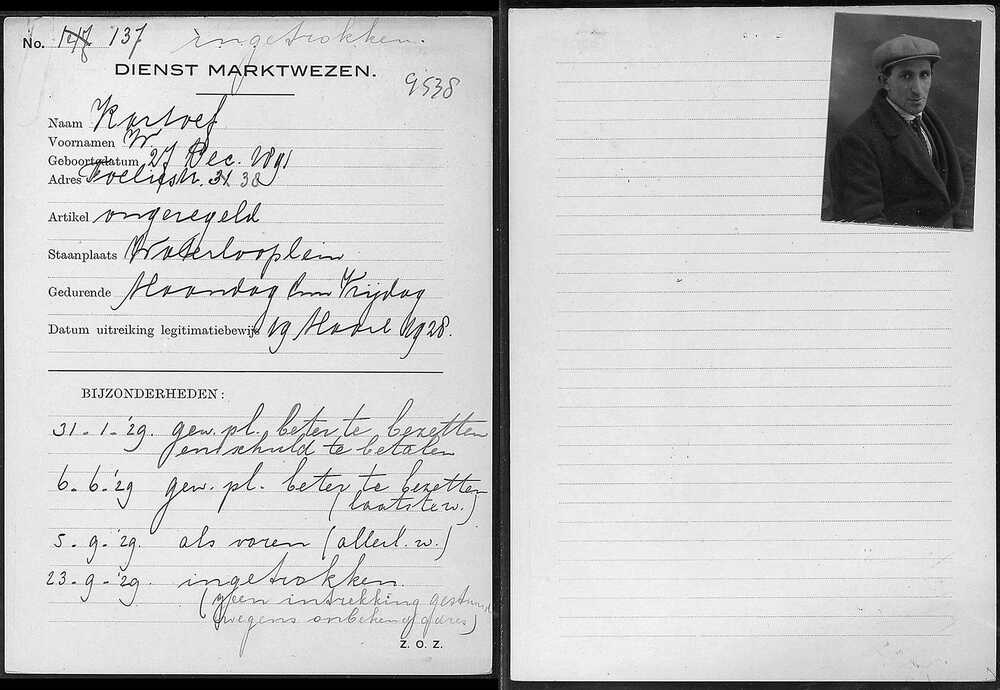 No. 147 137 ingetrokken.
DIENST MARKTWEZEN.
9538
Naam Kartoef
Voornamen W.
Geboortedatum 27 Dec. 1891
Adres Foeliestr. 31 38
Artikel ongeregeld
Staanplaats Waterlooplein
Gedurende Maandag t/m Vrijdag
Datum uitreiking legitimatiebewijs 19 Maart 1928.
BIJZONDERHEDEN:
31-1-'29. gew. pl. beter te bezetten
en schuld te betalen
6-6-'29 gew. pl. beter te bezetten
(laatste w.)
5-9-'29. als voren (allerl. w.)
23-9-'29. ingetrokken.
(geen intrekking gestuurd
wegens onbekend adres)
Z. O. Z.